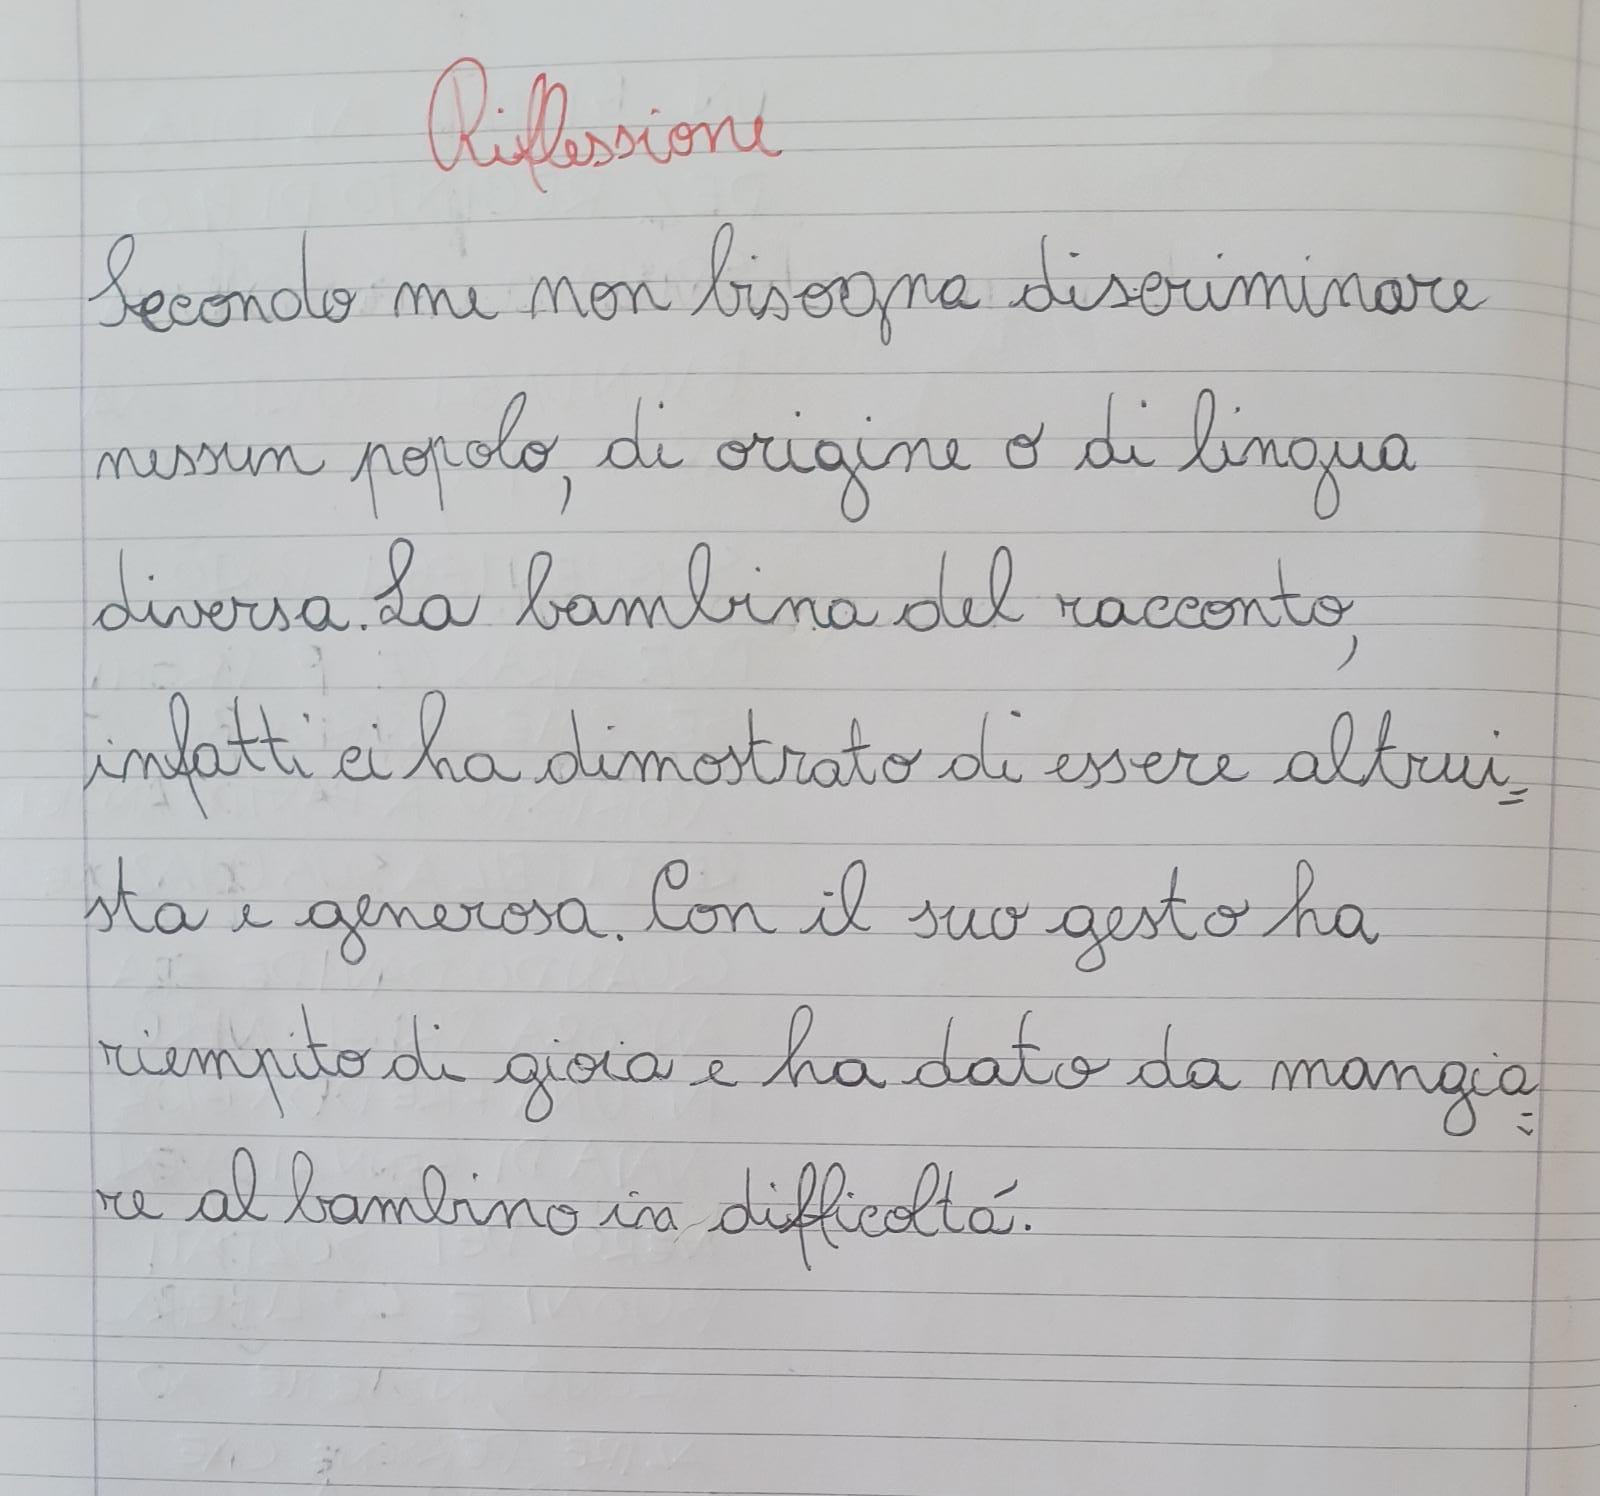 Riflessione
Secondo me non bisogna discriminare
nessun popolo, di origine o di lingua
diversa. La bambina del racconto,
infatti ci ha dimostrato di essere altrui=
sta e generosa. Con il suo gesto ha
riempito di gioia e ha dato da mangia=
re al bambino in difficoltá.